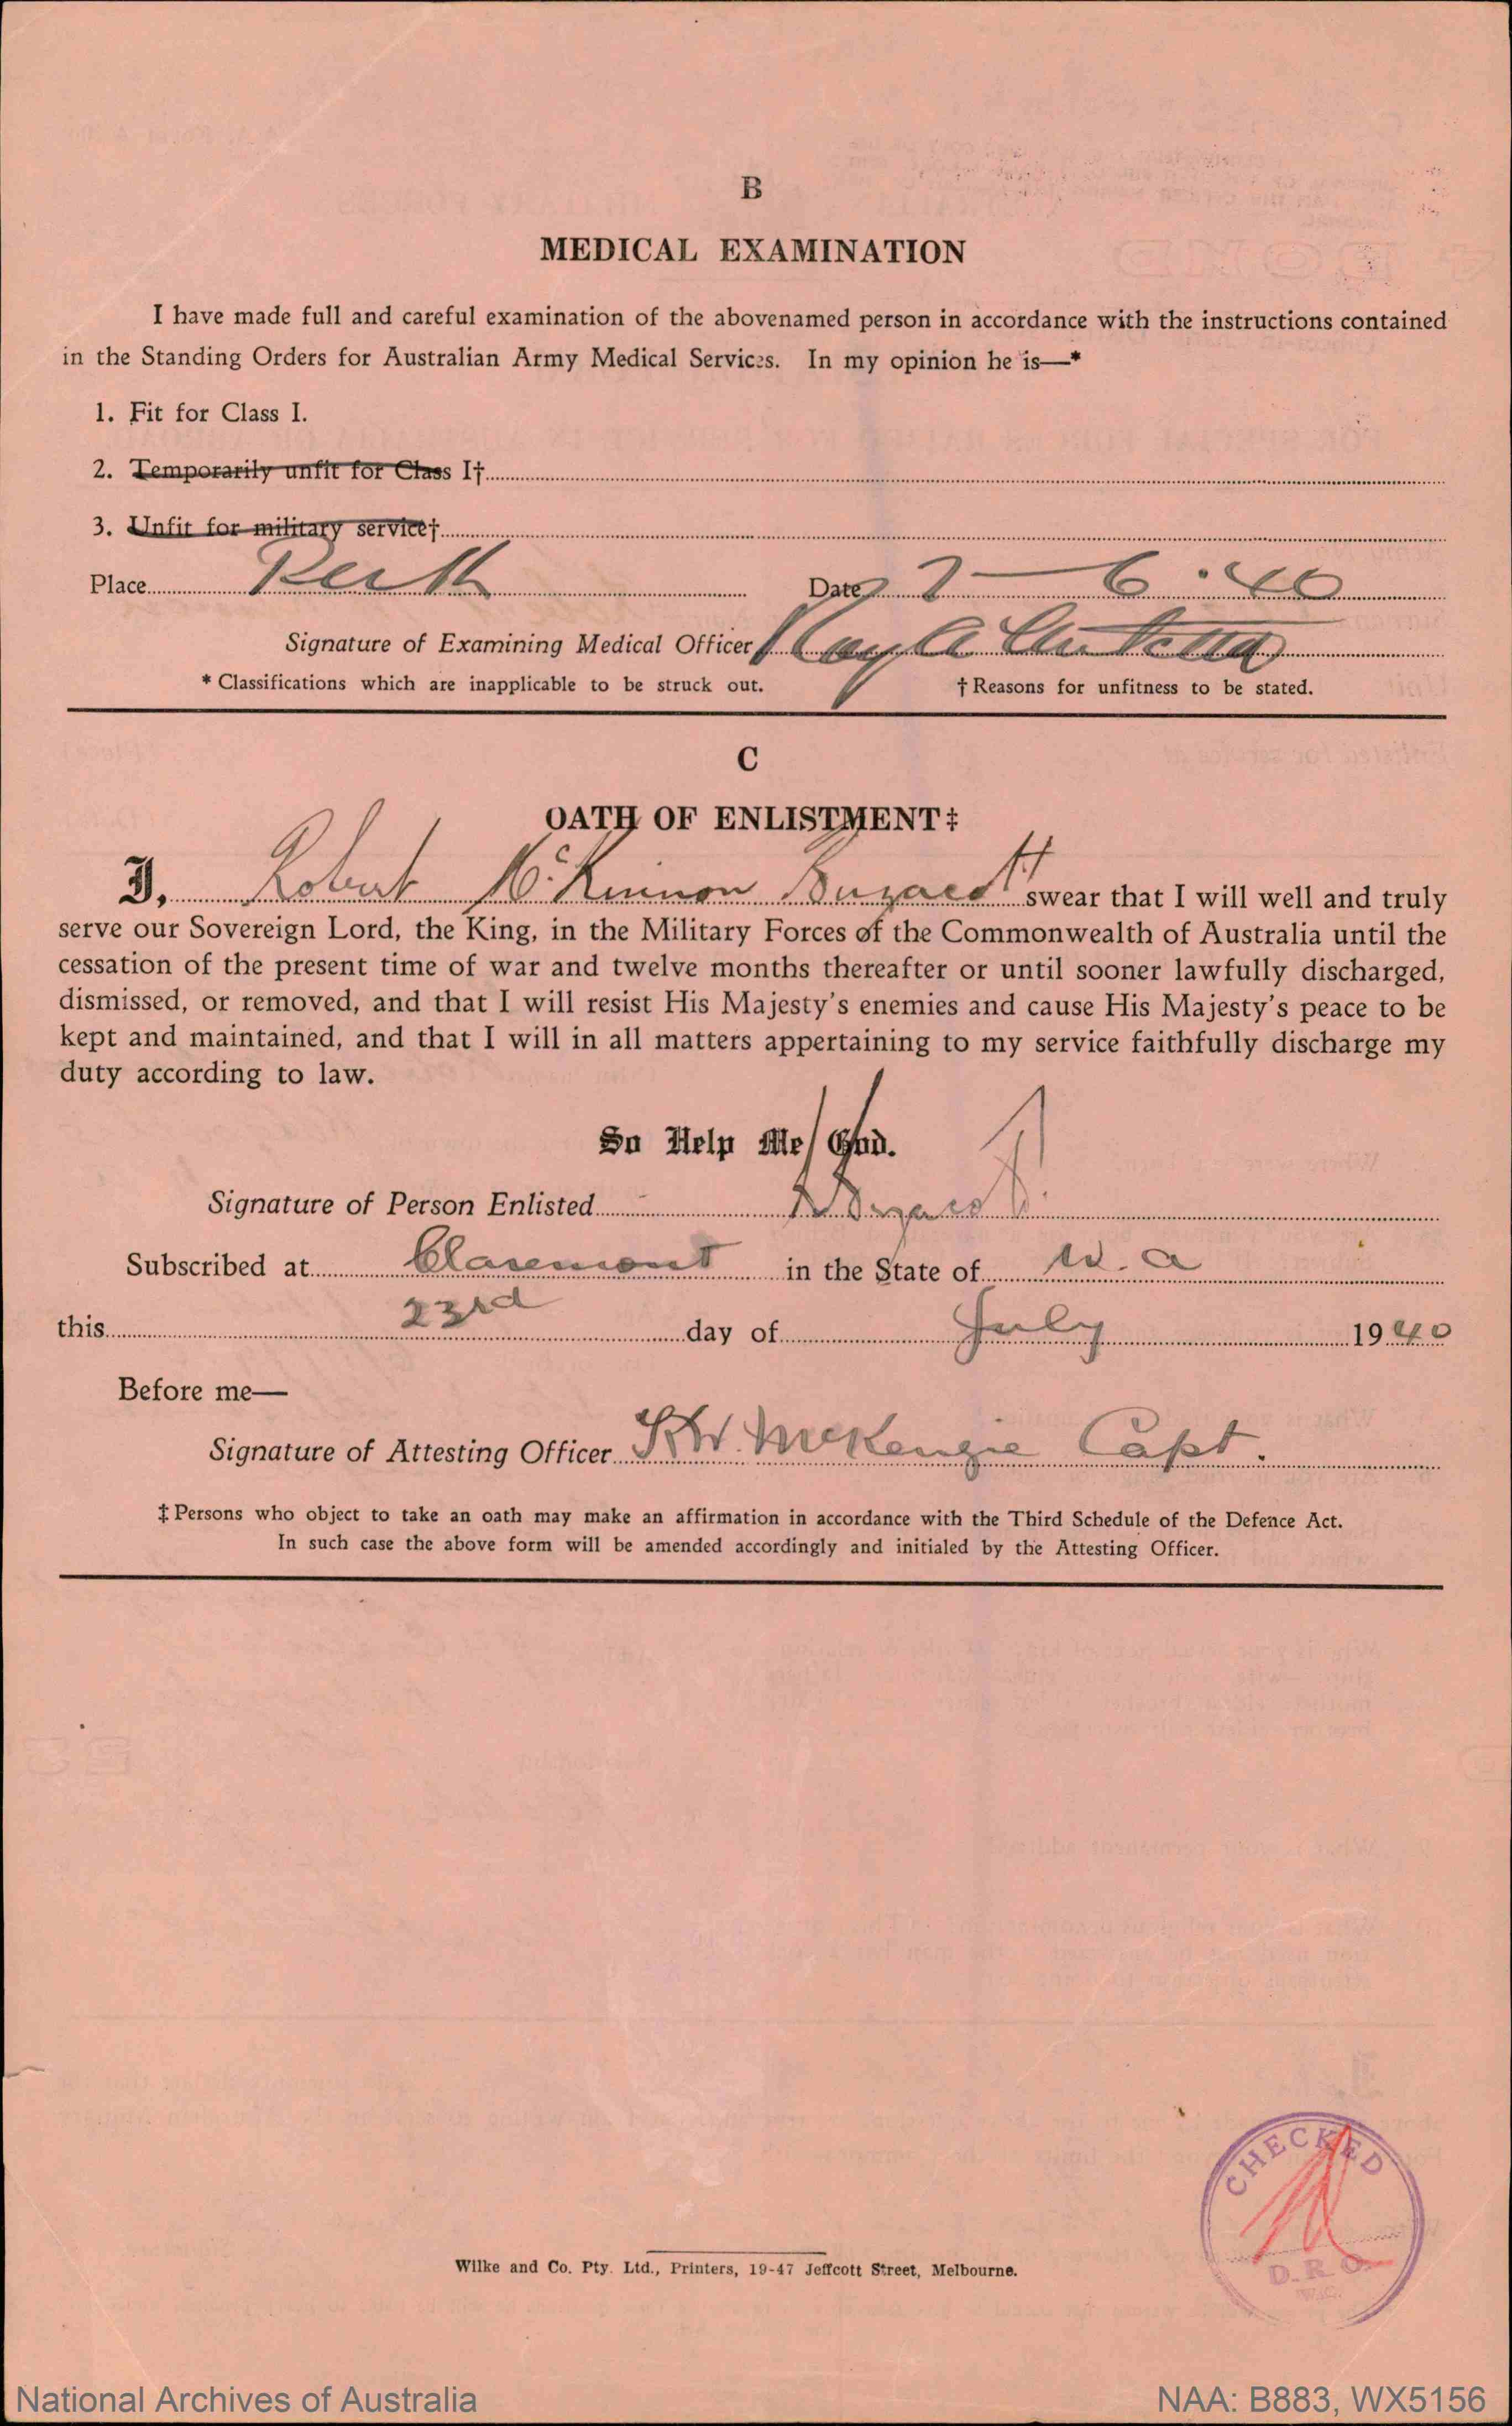 B
MEDICAL EXAMINATION
I have made full and careful examination of the abovenamed person in accordance with the instructions contained
in the Standing Orders for Australian Army Medical Services. In my opinion he is—*
1. Fit for Class I.
2. Temporarily unfit for Class I†
3. Unfit for military service†
Place Perth Date 7-6-40
Signature of Examining Medical Officer
* Classifications which are inapplicable to be struck out. † Reasons for unfitness to be stated.
C
OATH OF ENLISTMENT‡
I, Robert McKinnon Buzacott swear that I will well and truly
serve our Sovereign Lord, the King, in the Military Forces of the Commonwealth of Australia until the
cessation of the present time of war and twelve months thereafter or until sooner lawfully discharged,
dismissed, or removed, and that I will resist His Majesty's enemies and cause His Majesty's peace to be
kept and maintained, and that I will in all matters appertaining to my service faithfully discharge my
duty according to law.
So Help Me God.
Signature of Person Enlisted R Buzacott
Subscribed at Claremont in the State of W.A
this 23rd day of July 1940
Before me—
Signature of Attesting Officer McKenzie Capt.
‡ Persons who object to take an oath may make an affirmation in accordance with the Third Schedule of the Defence Act.
In such case the above form will be amended accordingly and initialed by the Attesting Officer.
CHECKED
D.R.O.
W.C.
Wilke and Co. Pty. Ltd., Printers, 19-47 Jeffcott Street, Melbourne.
National Archives of Australia NAA: B883, WX5156